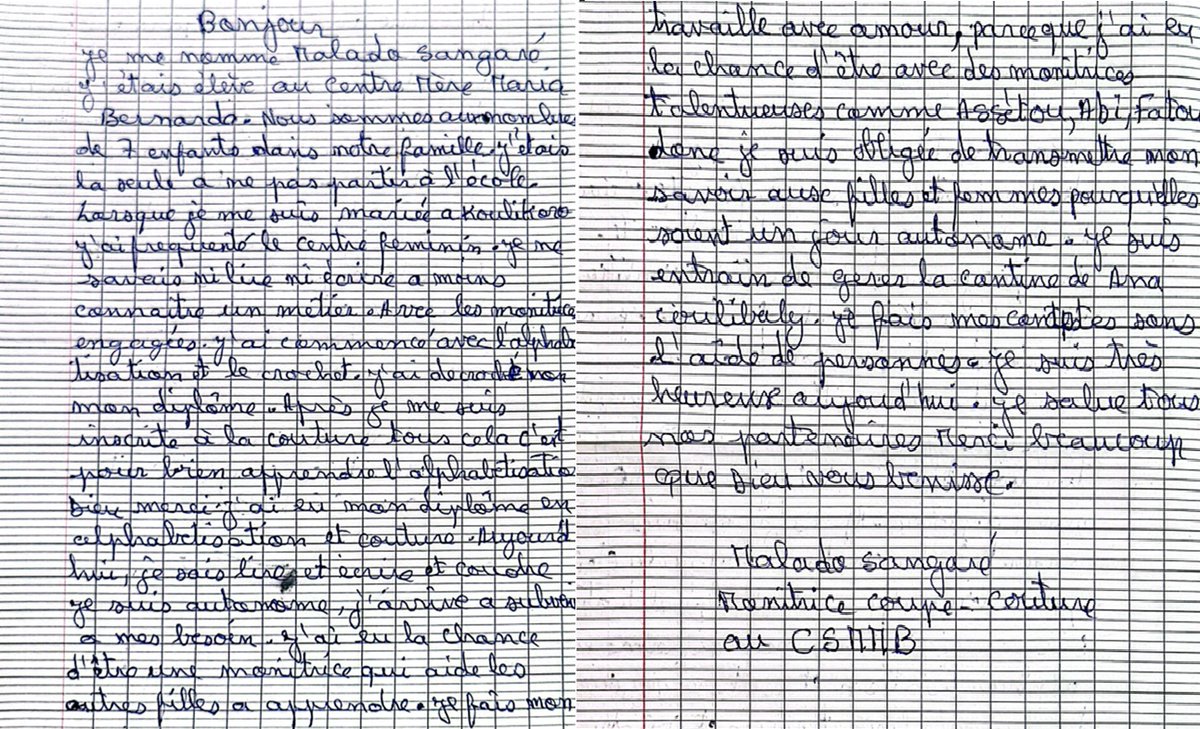 Bonjour
je me nomme Malado Sangaré
j'étais élève au Centre Mère Maria
Bernarda. Nous sommes au nombre
de 7 enfants dans notre famille. j'étais
la seule a ne pas partir à l'école.
Lorsque je me suis mariée a Koulikoro
j'ai frequenté le centre feminin. je ne
savais ni lire ni écrire a moins
connaître un métier. Avec les monitrice
engagées. j'ai commencé avec l'alphab
tisation et le crochet. j'ai decroché mon
mon diplôme. Après je me suis
inscrite à la couture tous cela c'est
pour bien apprendre l'alphabétisation
Dieu merci j'ai eu mon diplôme en
alphabetisation et couture. Aujourd
hui, je sais lire et écrire et coudre
je suis autonome, j'arrive a subven
a mes besoin. j'ai eu la chance
d'être une monitrice qui aide les
autres filles a apprendre. je fais mon
travaille avec amour, parceque j'ai eu
la chance d'être avec des monitrices
talentueuses comme Assètou, Abi, Fatou
donc je suis obligée de transmettre mon
savoir aux filles et femmes pourqu'elles
soient un jour autoname. je suis
entrain de gerer la cantine de Ana
coulibaly. je fais mes comptes sans
l'aide de personnes. je suis très
heureuse aujourd'hui. je salue tous
nos partenaires Merci beaucoup
que Dieu vous benisse.
Malado Sangaré
Monitrice coupe - couture
au CSMMB